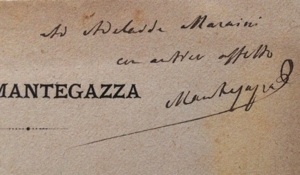 Ad Adelaide Maraini
con antico affetto
MANTEGAZZA
Mantegazza